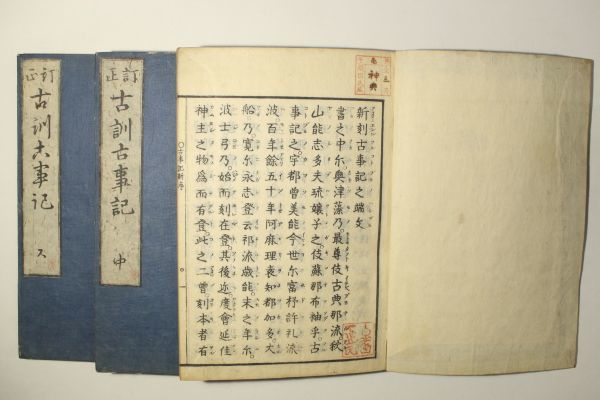 訂正
古訓古事記
訂正
古訓古事記
中
神典
新刻古事記之端文
書之中尓奥津藻乃最尊伎古典那流秋
山能志多夫琉嬢子之伎蘇那布袖乎古
事記之宇都曽美能今世尓富杼許礼流
波百年餘五十年阿麻理衰知都加多丈
船乃寛尓永志登云祁流歳能末之年尓
波士弓乃始而刻在登其後迩度會延佳
神主之物為而有登此之二曽刻本者有